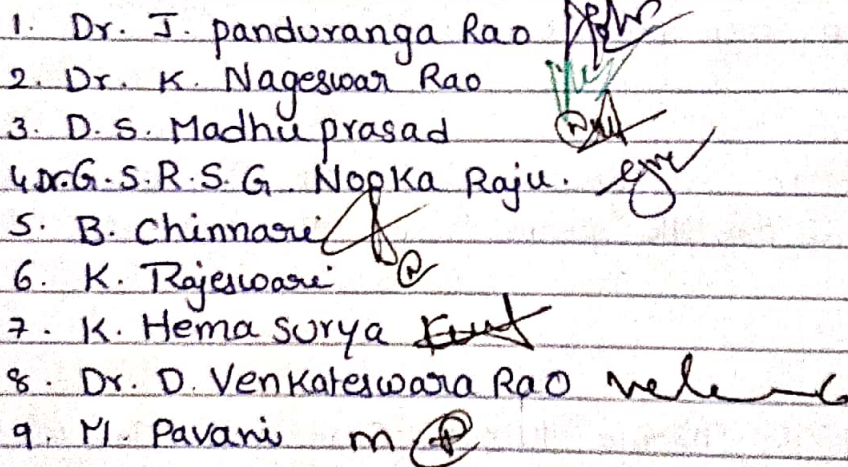 1. Dr. J. panduranga Rao
2. Dr. K. Nageswar Rao
3. D. S. Madhu prasad
4 Dr. G. S. R. S. G. Nooka Raju.
5. B. Chinnari
6. K. Rajeswari
7. K. Hema Surya
8. Dr. D. Venkateswara Rao
9. M. Pavani m P